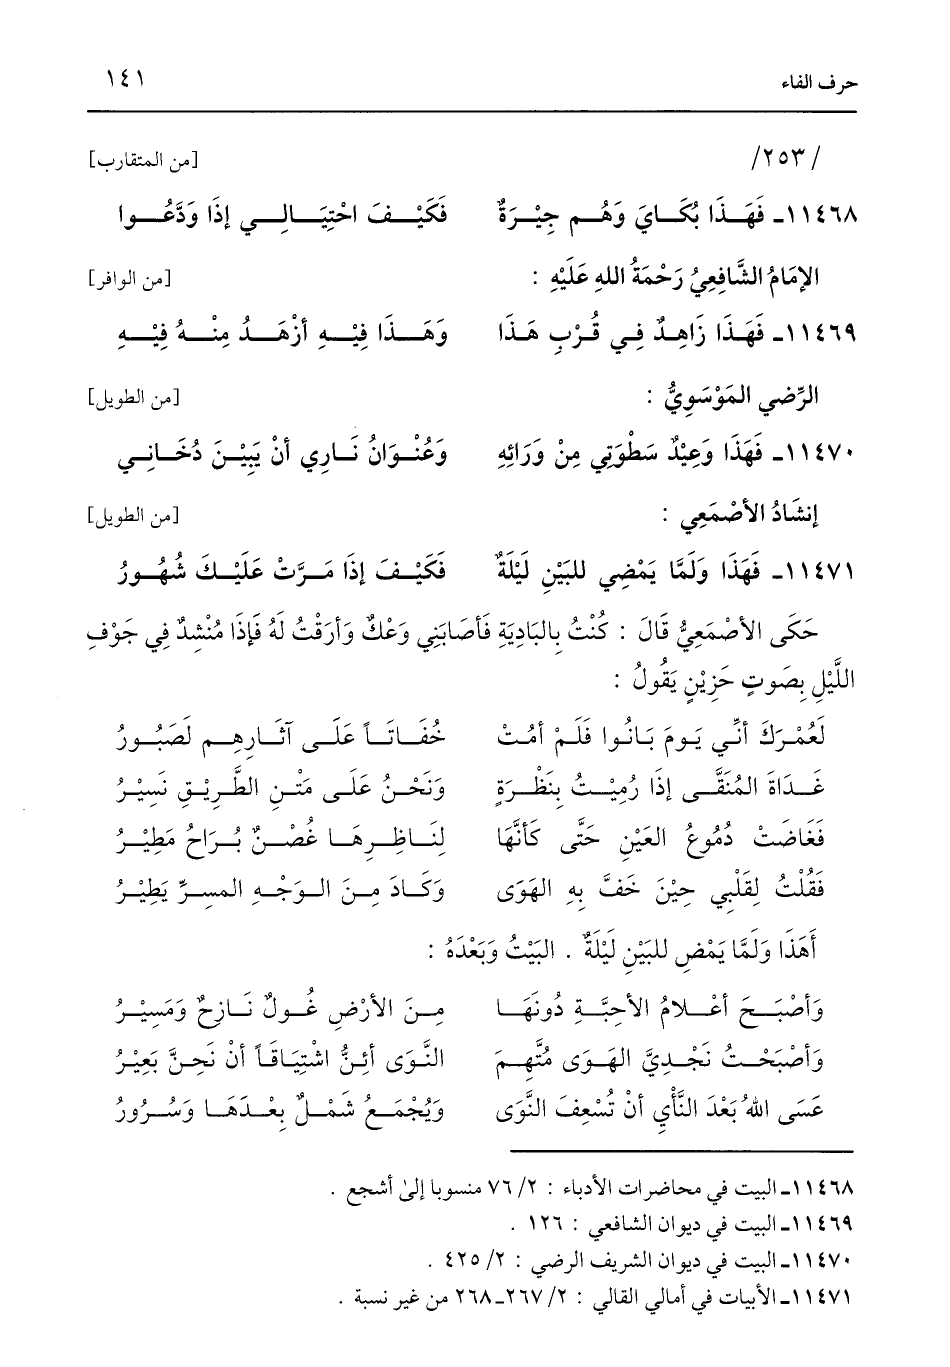 حرف الفاء ١٤١
/٢٥٣/ [من المتقارب]
١١٤٦٨ـ فَهَذَا بُكَايَ وَهُم جِيْرَةٌ فَكَيْفَ احْتِيَالِي إذَا وَدَّعُوا
الإمَامُ الشَّافِعِيُّ رَحْمَةُ اللهِ عَلَيْهِ : [من الوافر]
١١٤٦٩ـ فَهَذَا زَاهِدٌ فِي قُرْبِ هَذَا وَهَذَا فِيْهِ أزْهَدُ مِنْهُ فِيْهِ
الرّضي المَوْسَوِيُّ : [من الطويل]
١١٤٧٠ـ فَهَذَا وَعِيْدٌ سَطْوَتِي مِنْ وَرَائِهِ وَعُنْوَانُ نَارِي أنْ يَبِيْنَ دُخَانِي
إنشَادُ الأصْمَعِي : [من الطويل]
١١٤٧١ـ فَهَذَا وَلَمَّا يَمْضِي للبَيْنِ لَيْلَةٌ فَكَيْفَ إذَا مَرَّتْ عَلَيْكَ شُهُورُ
حَكَى الأصْمَعِيُّ قَالَ : كُنْتُ بِالبَادِيَةِ فَأصَابَنِي وَعْكٌ وَأرَقْتُ لَهُ فَإذَا مُنْشِدٌ فِي جَوْفِ
اللَّيْلِ بِصَوتٍ حَزِيْنٍ يَقُولُ :
لَعُمْرَكَ أنِّي يَومَ بَانُوا فَلَمْ أمُتْ خُفَاتَاً عَلَى آثَارِهِم لَصَبُورُ
غَدَاةَ المُنَقَّى إذَا رُمِيْتُ بِنَظْرَةٍ وَنَحْنُ عَلَى مَتْنِ الطَّرِيْقِ نَسِيْرُ
فَغَاضَتْ دُمُوعُ العَيْنِ حَتَّى كَأنَّهَا لِنَاظِرِهَا غُصْنٌ بُرَاحُ مَطِيْرُ
فَقُلْتُ لِقَلْبِي حِيْنَ خَفَّ بِهِ الهَوَى وَكَادَ مِنَ الوَجْهِ المسرِّ يَطِيْرُ
أَهَذَا وَلَمَّا يَمْضِ للبَيْنِ لَيْلَةٌ . البَيْتُ وَبَعْدَهُ :
وَأصْبَحَ أعْلامُ الأحِبَّةِ دُونَهَا مِنَ الأرْضِ غُولٌ نَازِحٌ وَمَسِيْرُ
وَأصْبَحْتُ نَجْدِيَّ الهَوَى مُتَّهِمَ النَّوَى أئِنُّ اشْتِيَاقَاً أنْ نَحِنَّ بَعِيْرُ
عَسَى اللهُ بَعْدَ النَّأيِ أنْ تُسْعِفَ النَّوَى وَيُجْمَعُ شَمْلٌ بِعْدَهَا وَسُرُورُ
١١٤٦٨ـ البيت في محاضرات الأدباء : ٢/ ٧٦ منسوبا إلىٰ أشجع .
١١٤٦٩ـ البيت في ديوان الشافعي : ١٢٦ .
١١٤٧٠ـ البيت في ديوان الشريف الرضي : ٢/ ٤٢٥ .
١١٤٧١ـ الأبيات في أمالي القالي : ٢/ ٢٦٧ـ٢٦٨ من غير نسبة .